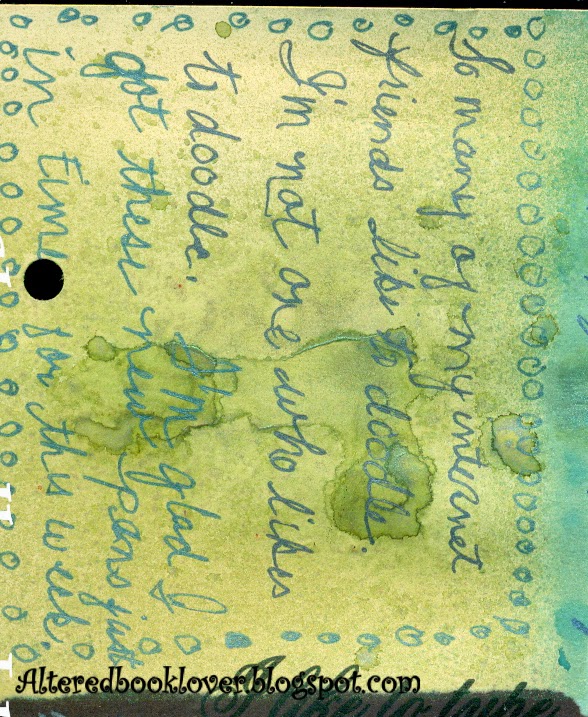 So many of my internet
friends like to doodle.
I'm not one who likes
to doodle. I'm glad I
got these new pens just
in time for this week.
Alteredbooklover.blogspot.com